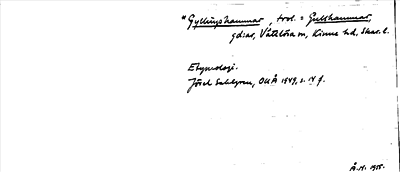 *Gyllingshammar, trol. = Gullhammar,
gdiar, Vättlösa sn, Kinne hd, Skar. l.
Etymologi.
Jöran Sahlgren, OUÅ 1949, s. 14 f.
Å.H. 1955.